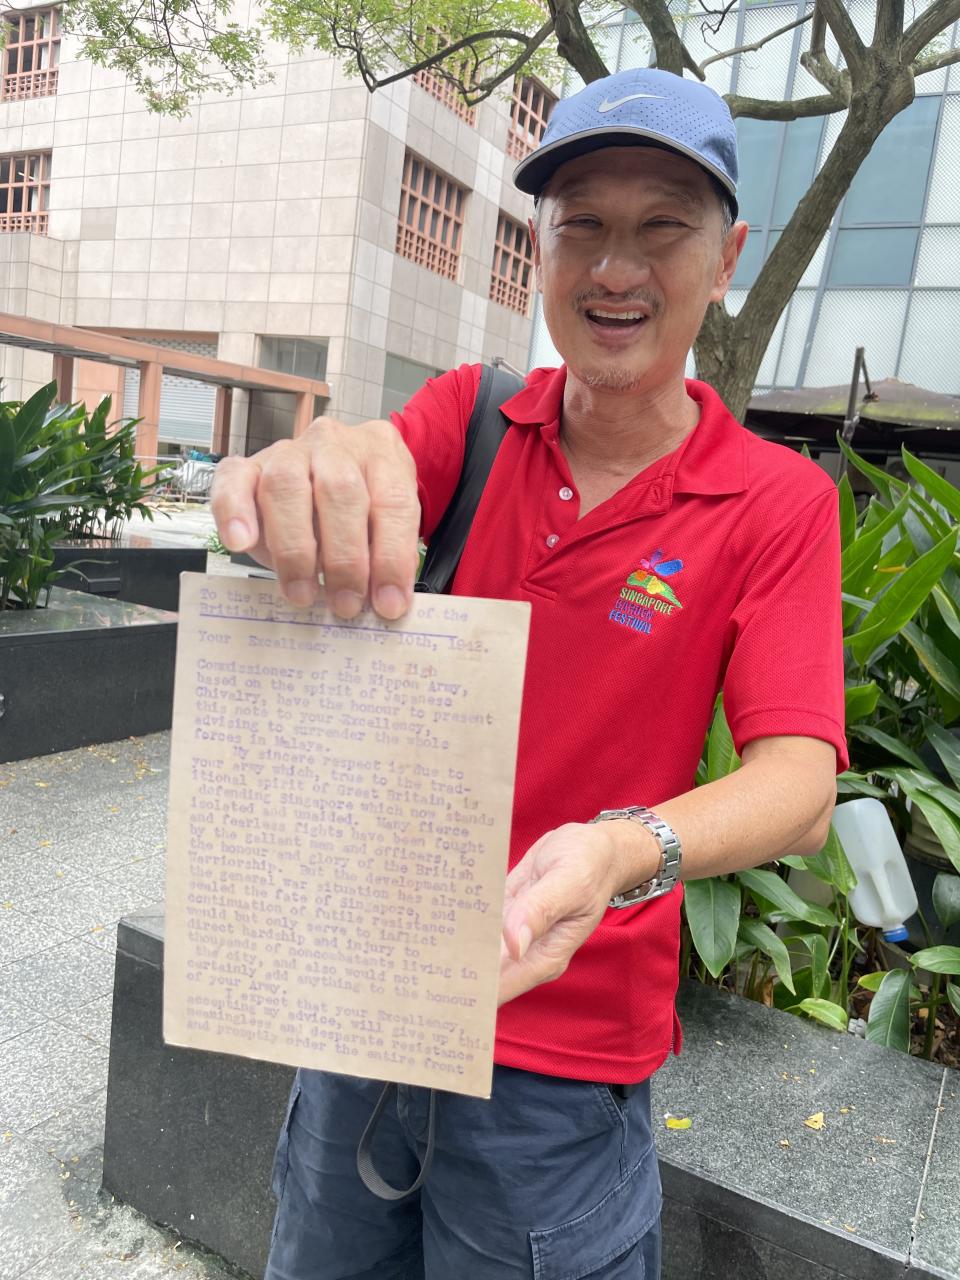 To the of the
British Army in
February 10th, 1942.
Your Excellency.
I, the High
Commissioners of the Nippon Army,
based on the spirit of Japanese
Chivalry, have the honour to present
this note to your Excellency,
advising to surrender the whole
forces in Malaya.
My sincere respect is due to
your army which, true to the trad-
itional spirit of Great Britain, is
defending Singapore which now stands
isolated and unaided. Many fierce
and fearless fights have been fought
by the gallant men and officers, to
the honour and glory of the British
Warriorship. But the development of
the general war situation has already
sealed the fate of Singapore, and
continuation of futile resistance
would but only serve to inflict
direct hardship and injury to
thousands of noncombatants living in
the city, and also would not
certainly add anything to the honour
of your Army.
I expect that your Excellency,
accepting my advice, will give up this
meaningless and desperate resistance
and promptly order the entire front
SINGAPORE
GARDEN
FESTIVAL